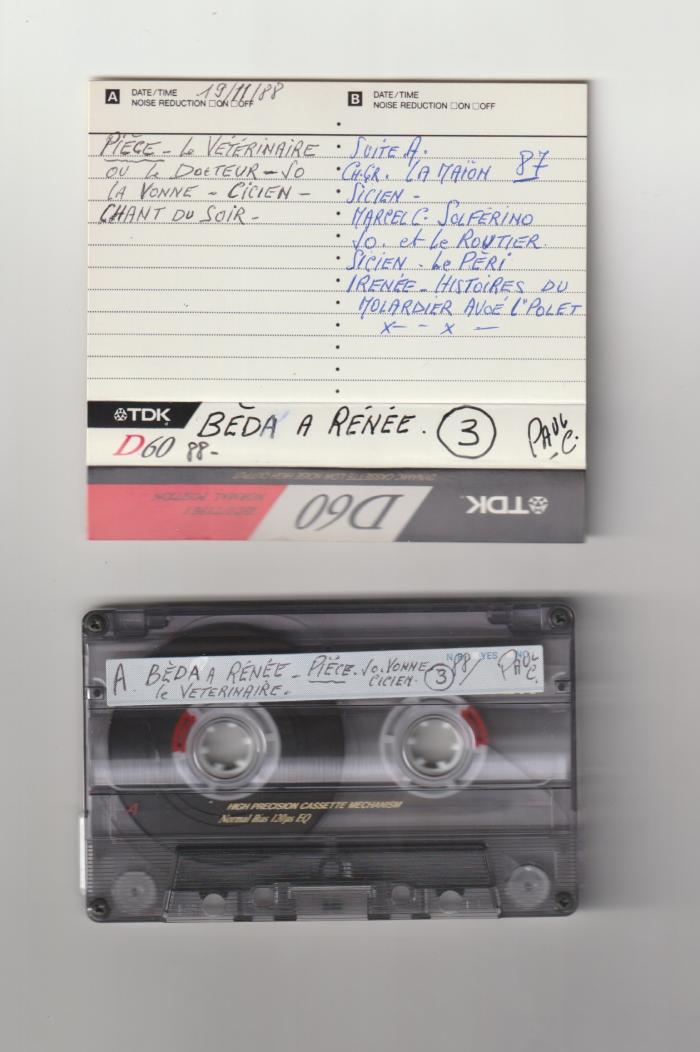 A DATE/TIME 19/11/88
NOISE REDUCTION ON OFF
PIÈCE - Le VÉTÉRINAIRE
OU le DOCTEUR - JO
LA VONNE - CICIEN -
CHANT DU SOIR -
B DATE/TIME
NOISE REDUCTION ON OFF
SUITE A.
CH.GR. LA MAÏON 87
SICIEN -
MARCEL C. SOLFÉRINO
JO. et le ROUTIER
SICIEN - Le PÈRI
IRENÉE - HISTOIRES DU
MOLARDIER AVOÉ L'POLET
x - - x -
TDK BĒDA A RENÉE. 3 PAUL C.
D60 88-
DYNAMIC CASSETTE LOW NOISE HIGH OUTPUT
IECI/TYPE I
NORMAL POSITION
D60
TDK
A BĒDA A RENÉE - PIÈCE. JO. VONNE 3 88/ PAUL C.
le VETERINAIRE. CICIEN.
YES NO
A
HIGH PRECISION CASSETTE MECHANISM
Normal Bias 120µs EQ